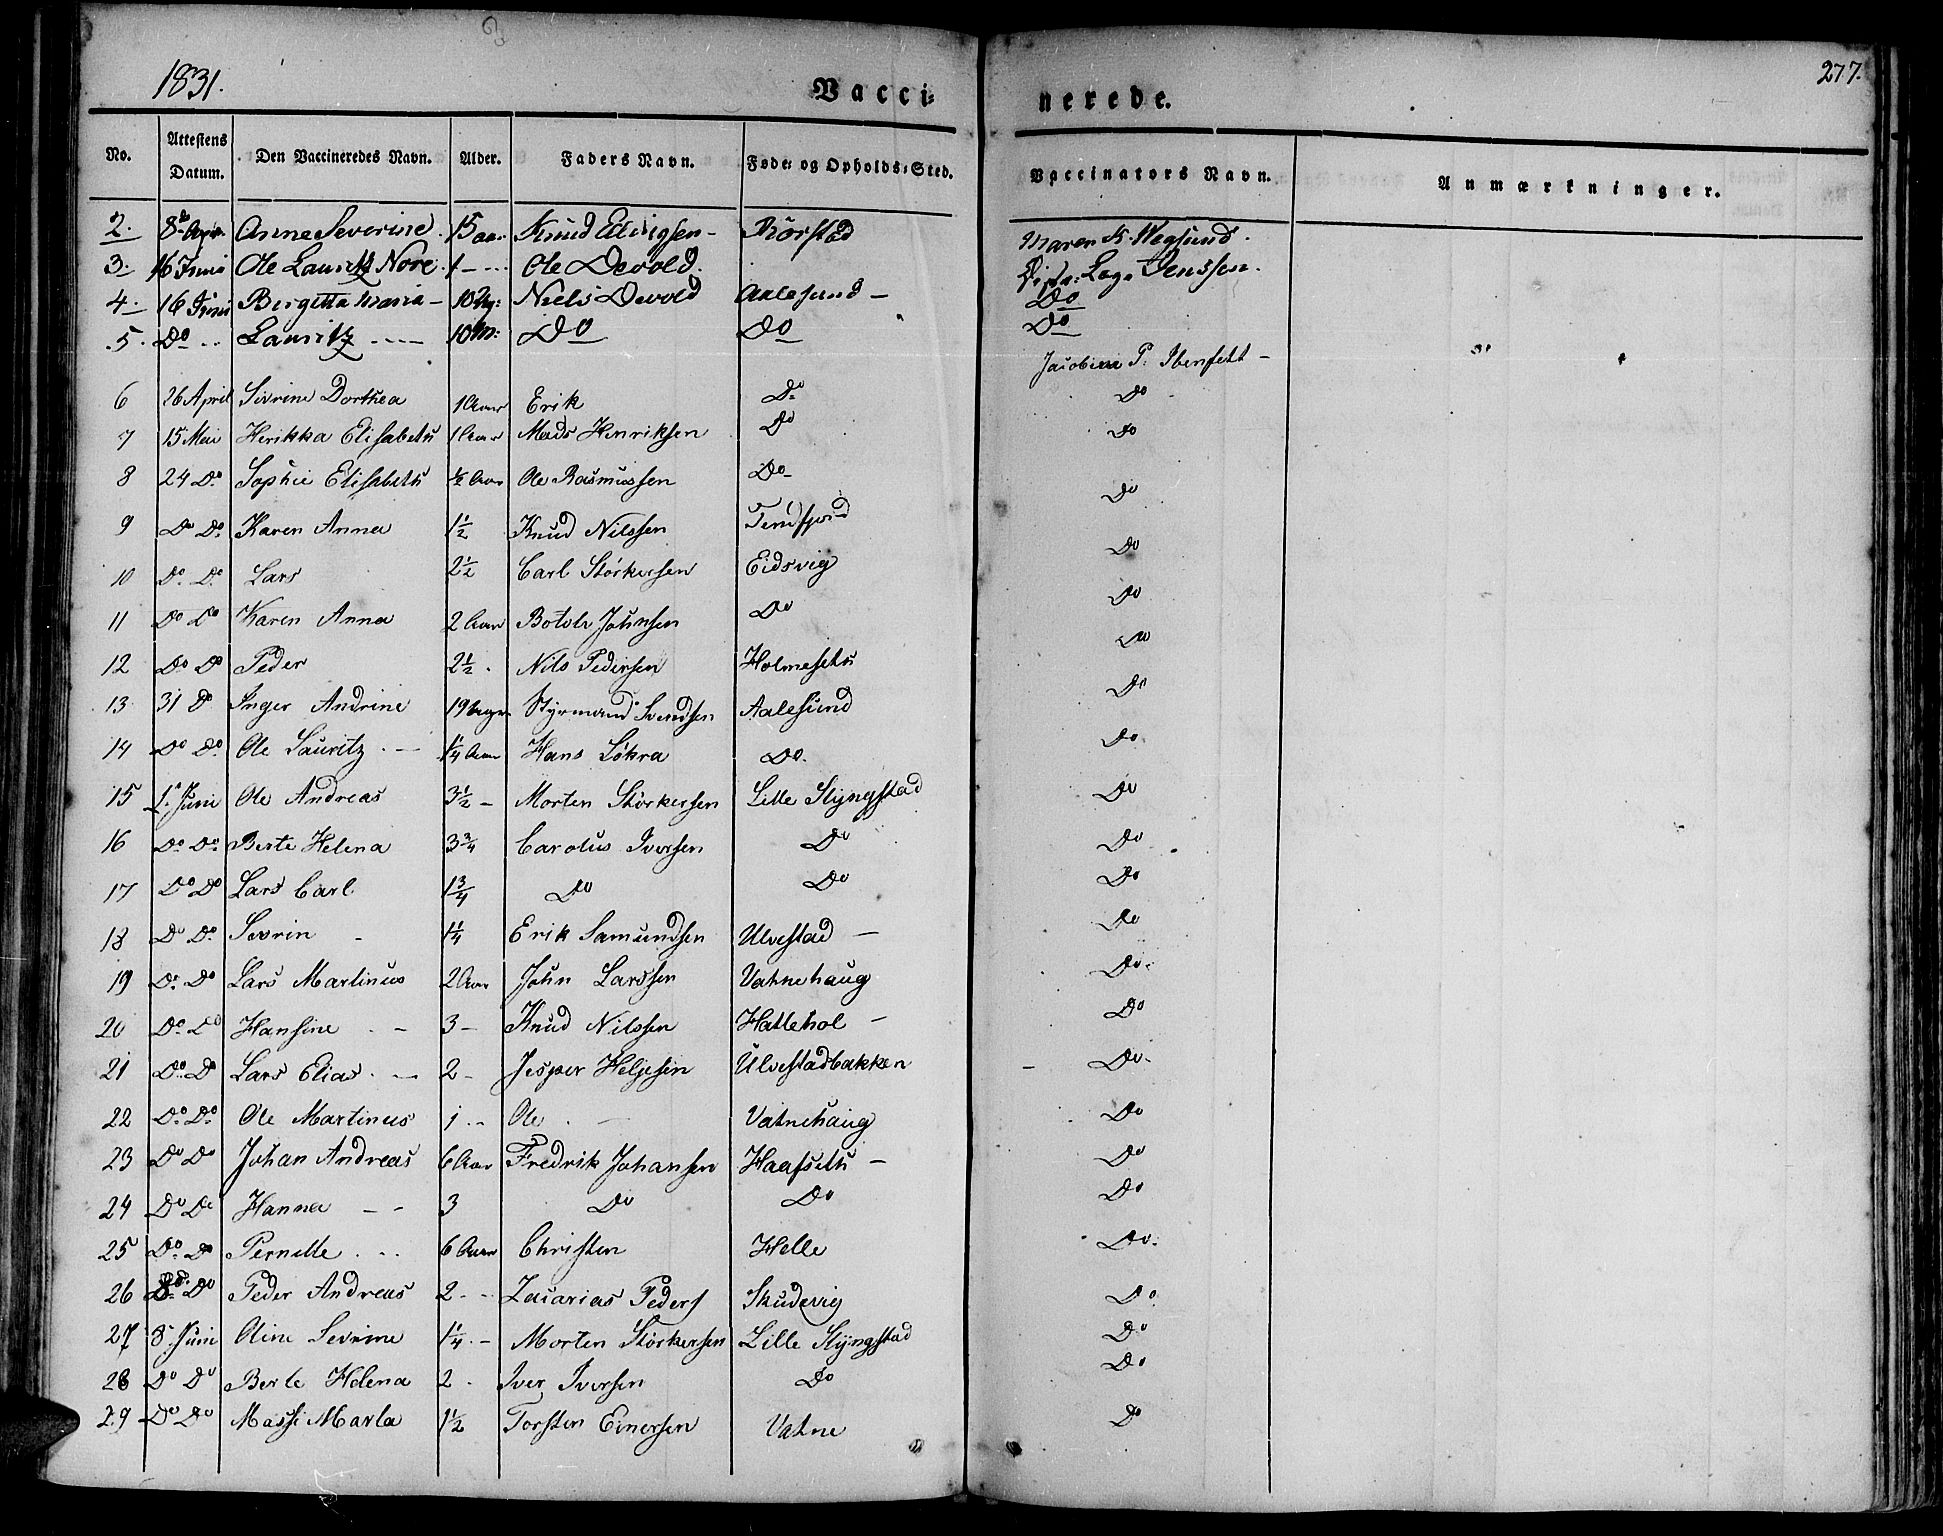 1831. Vaccinerede. 277.
No. Attestens Datum. Den Vaccineredes Navn. Alder. Faders Navn. Føde- og Opholds-Sted. Vaccinators Navn. Anmærkninger.
2. 8de Anne Severine. 15 aar Knud Rørstad Maren K.
3. 16 Juni Ole Lauritz Nore. 1 - Ole Devold. Jenssen.
4. 16 Juni Birgitta Maria - Niels Devold Aalesund - Do
5. Do Lauritz 10 M: Do Do Do
Jacobine P. Ibenfelt -
6 26 April Sivrine Dorthea 1 Aar Erik Do Do
7 15 Mai Herikka Elisabeth 1 Aar Mads Henriksen Do Do
8 24 Do Sophie Elisabeth ½ Aar Ole Rasmussen Do Do
9 Do Do Karen Anna 1½ Knud Nilssen Tenfjord Do
10 Do Do Lars 2½ Carl Störkersen Eidsvig Do
11 Do Do Karen Anna 2 Aar Botolv Johnsen Do Do
12 Do Do Peder 2½ Nils Pedersen Holmeseth Do
13 31 Do Inger Andrine 19 Styrmand Svendsen Aalesund Do
14 Do Do Ole Lauritz 1¼ Aar Hans Lökra Do Do
15 1ste Juni Ole Andreas 3½ - Morten Störkersen Lille Slyngstad Do
16 Do Do Berte Helena 3¾ Carolus Iversen Do Do
17 Do Do Lars Carl 1¾ Do Do Do
18 Do Do Sevrin 1¼ Erik Samundsen Ulvestad - Do
19 Do Do Lars Martinus 2 Aar John Larssen Vatnehaug Do
20 Do Do Hansine 3 - Knud Nilssen Hattehol - Do
21 Do Do Lars Elias 2 - Jesper Helgesen Ulvestadbakken Do
22 Do Do Ole Martinus 1 Ole Vatnehaug Do
23 Do Do Johan Andreas 6 Aar Fredrik Johansen Haafseth - Do
24 Do Do Hanna 3 Do Do Do
25 Do Do Pernille 6 Aar Christen Helle Do
26 Do Peder Andreas 2 Zacarias Peders Skudevig Do
27 8 Juni Oline Sevrine 1¼ - Morten Störkersen Lille Slyngstad Do
28 Do Do Berte Helena 2 Iver Iversen Do Do
29 Do Do Massi Marta 1½ Torsten Einersen Vatne Do